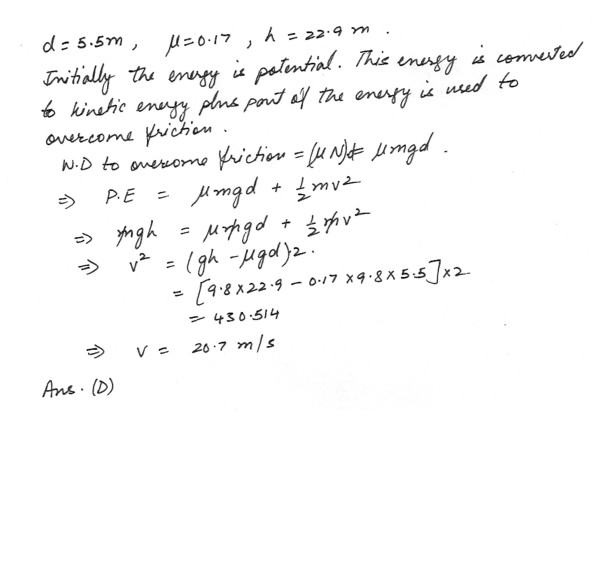 d = 5.5m , μ=0.17 , h = 22.9 m .
Initially the energy is potential. This energy is converted
to kinetic energy plus part of the energy is used to
overcome friction .
W.D to overcome friction = (μN)d = μmgd .
⇒ P.E = μmgd + ½mv²
⇒ mgh = μmgd + ½mv²
⇒ v² = (gh - μgd)2 .
= [9.8×22.9 - 0.17×9.8×5.5]×2
= 430.514
⇒ v = 20.7 m/s
Ans. (D)